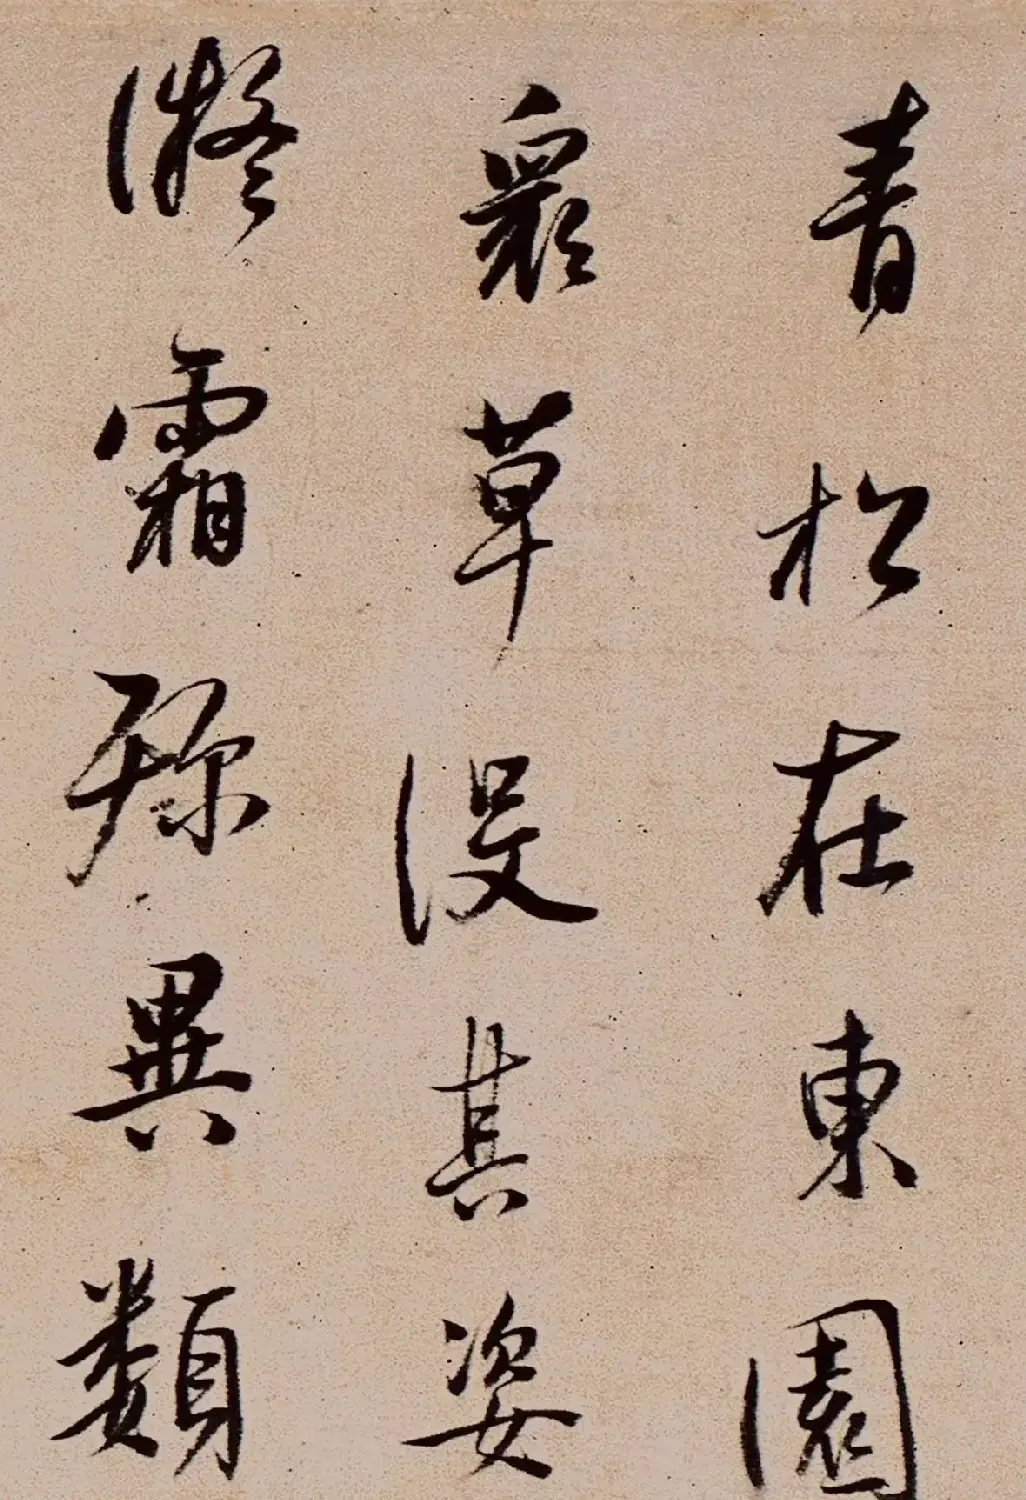 青松在東園
衆草没其姿
凝霜殄異類